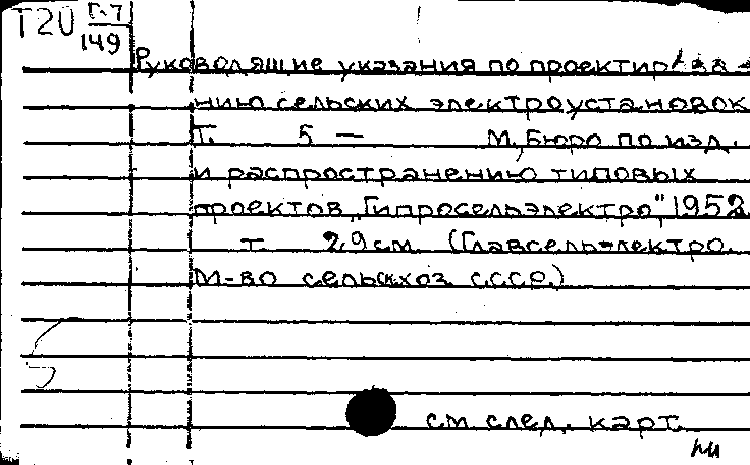 Т20 Г-7
149
Руководящие указания по проектирова-
нию сельских электроустановок
Т. 5 — М., Бюро по изд.
и распространению типовых
проектов "Гипросельэлектро", 1952
т. 29 см. (Главсельэлектро.
М-во сельскхоз СССР.)
см. след. карт.